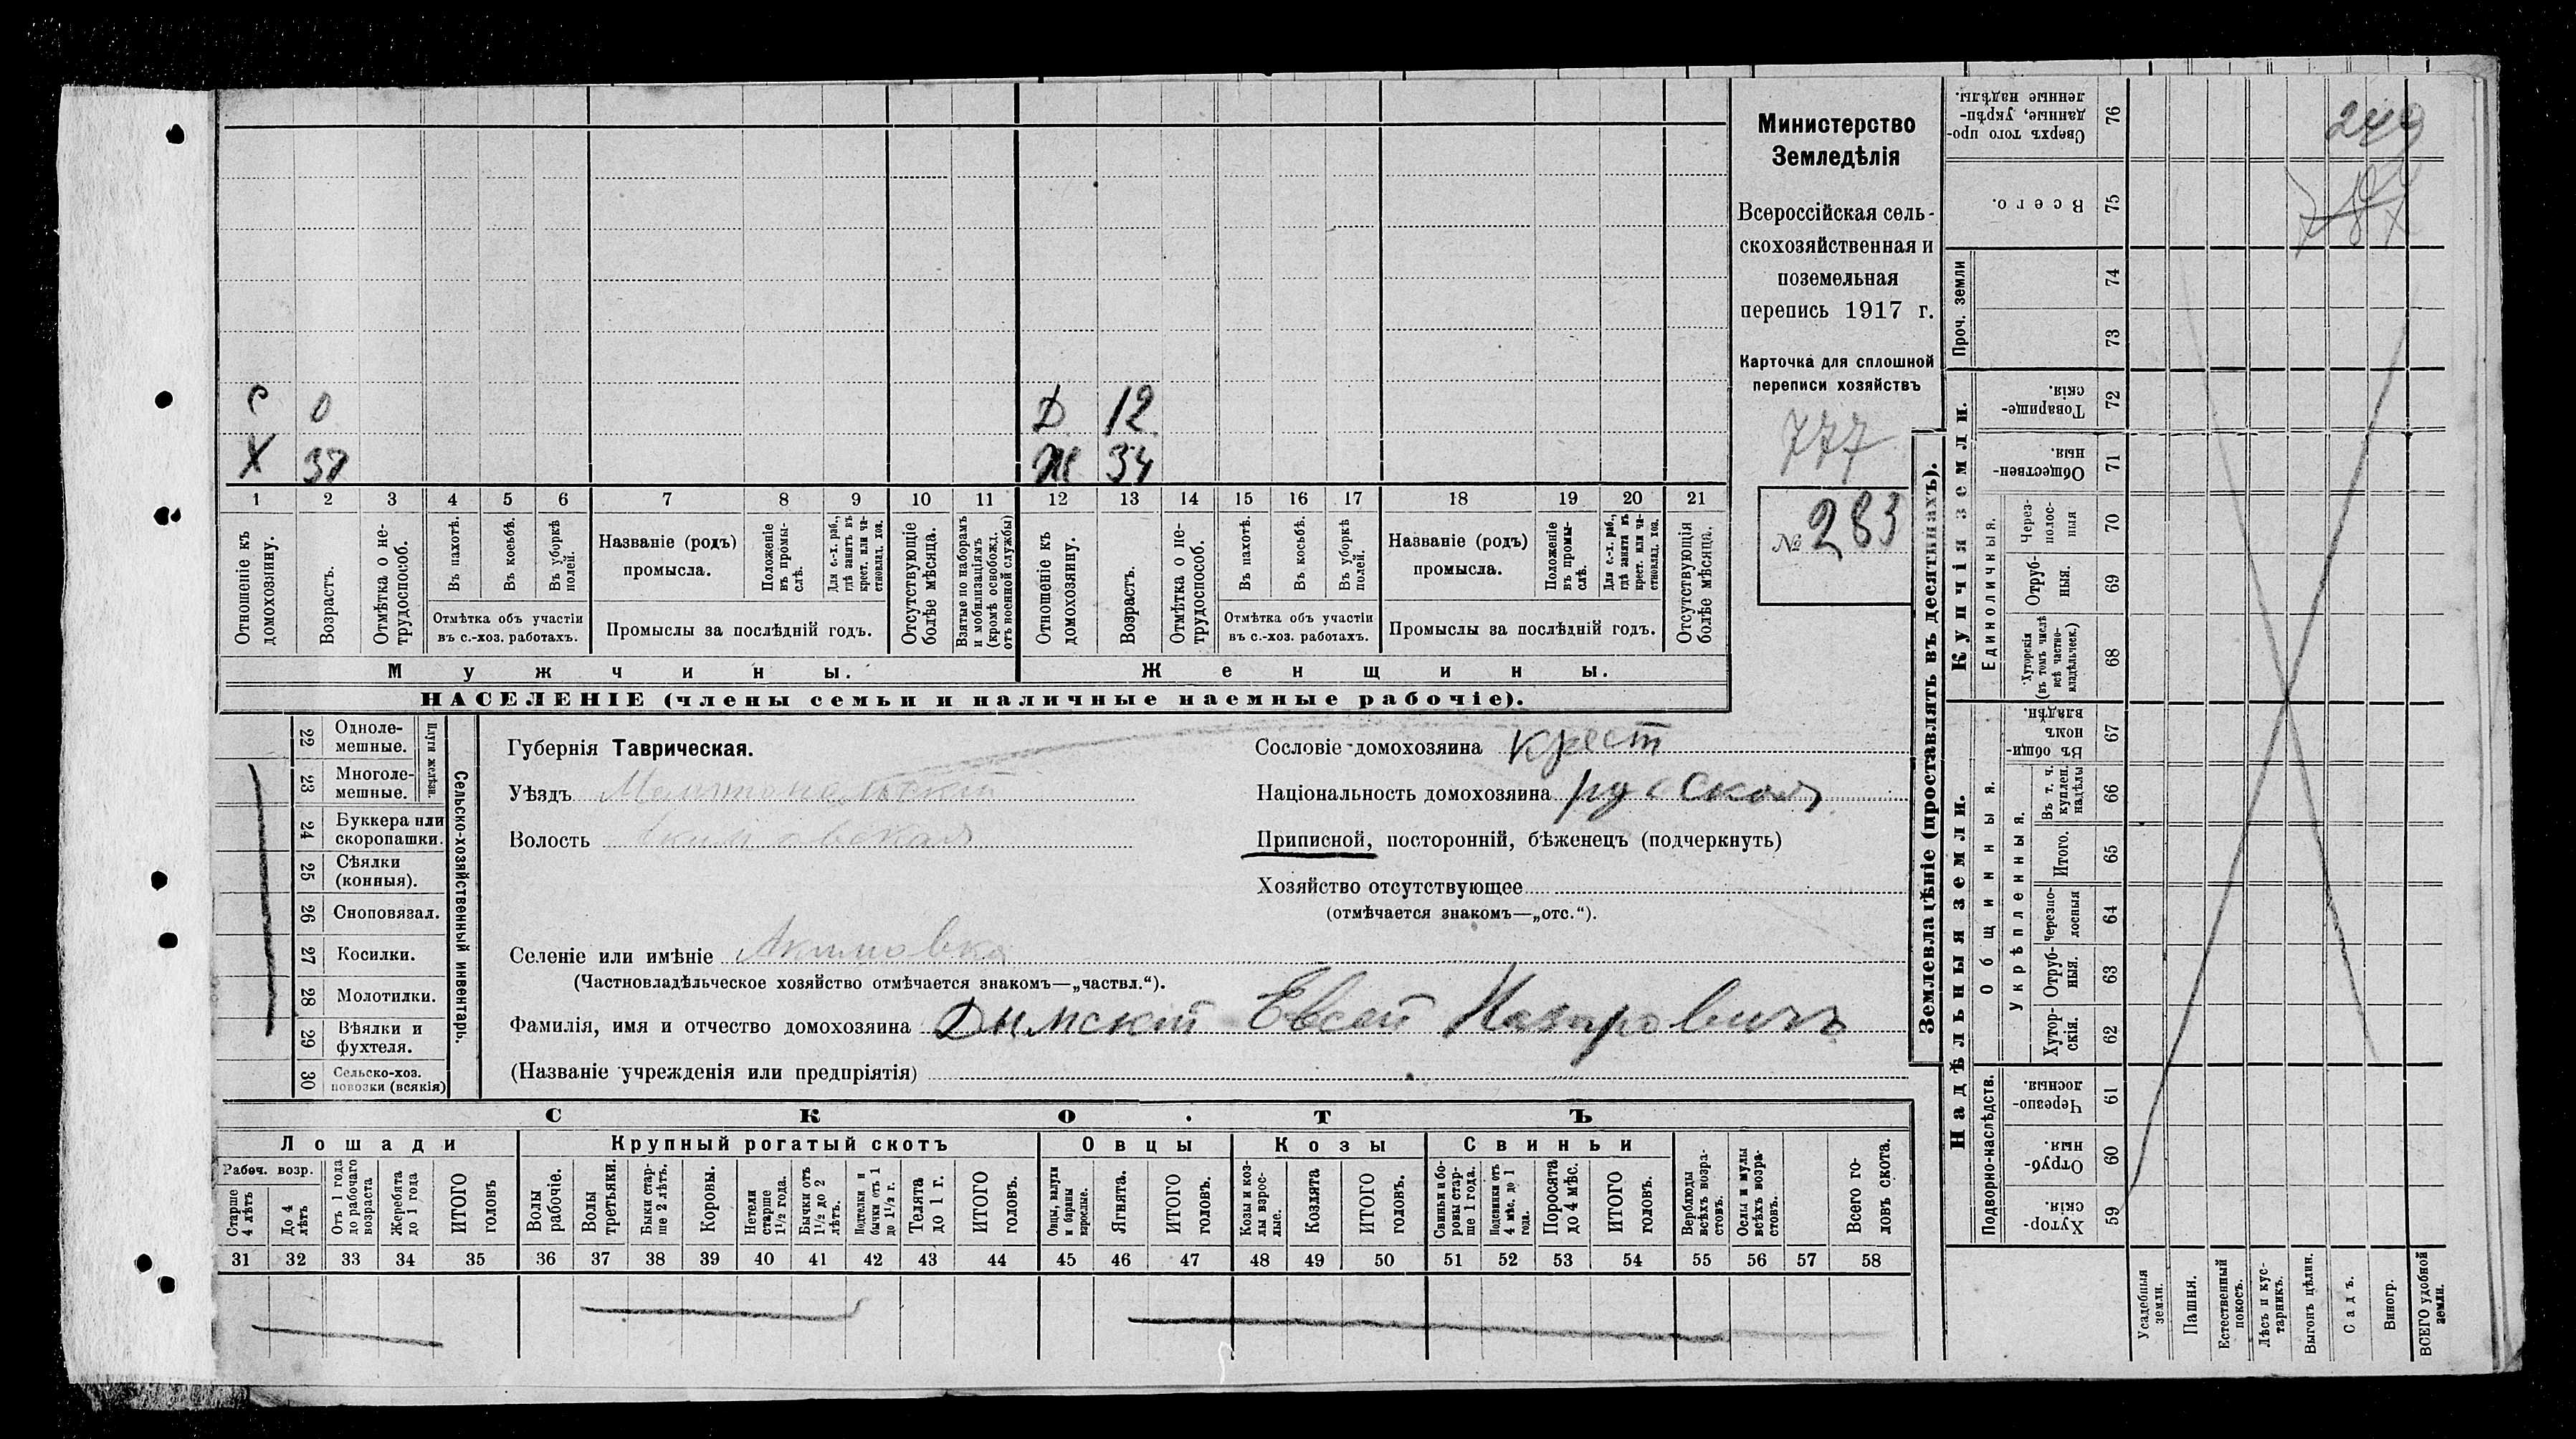 Министерство
Земледѣлія
Всероссійская сель-
скохозяйственная и
поземельная
перепись 1917 г.
Карточка для сплошной
переписи хозяйствъ
777
№ 283
С 0
Д 12
Х 37
Ж 34
1 2 3 4 5 6 7 8 9 10 11 12 13 14 15 16 17 18 19 20 21
Отношеніе къ домохозяину.
Возрастъ.
Отмѣтка о не-трудоспособ.
Въ пахотѣ.
Въ косьбѣ.
Въ уборкѣ полей.
Отмѣтка объ участіи
въ с.-хоз. работахъ.
Названіе (родъ)
промысла.
Положеніе въ промы-слѣ.
Для с.-х. раб., гдѣ занятъ въ крест. или ча-стновлад. хоз.
Промыслы за послѣдній годъ.
Отсутствующіе болѣе мѣсяца.
Взятые по наборамъ и мобилизаціямъ (кромѣ освобожд. отъ военной службы)
Отношеніе къ домохозяину.
Возрастъ.
Отмѣтка о не-трудоспособ.
Въ пахотѣ.
Въ косьбѣ.
Въ уборкѣ полей.
Отмѣтка объ участіи
въ с.-хоз. работахъ.
Названіе (родъ)
промысла.
Положеніе въ промы-слѣ.
Для с.-х. раб., гдѣ занята въ крест. или ча-стновлад. хоз.
Промыслы за послѣдній годъ.
Отсутствующія болѣе мѣсяца.
Мужчины.
Женщины.
НАСЕЛЕНІЕ (члены семьи и наличные наемные рабочіе).
22 Одноле-мешные.
23 Многоле-мешные.
Плуги желѣзн.
24 Буккера или скоропашки.
25 Сѣялки (конныя).
26 Сноповязал.
27 Косилки.
28 Молотилки.
29 Вѣялки и фухтеля.
30 Сельско-хоз. повозки (всякія)
Сельско-хозяйственный инвентарь.
Губернія Таврическая.
Уѣздъ Мелитопольскій
Волость Акимовская
Селеніе или имѣніе Акимовка
(Частновладѣльческое хозяйство отмѣчается знакомъ—„частвл.“).
Фамилія, имя и отчество домохозяина Дымскій Евсей Назаровичъ
(Названіе учрежденія или предпріятія)
Сословіе домохозяина крест
Національность домохозяина русская
Приписной, посторонній, бѣженецъ (подчеркнуть)
Хозяйство отсутствующее
(отмѣчается знакомъ—„отс.“).
СКОТЪ
Лошади
Крупный рогатый скотъ
Овцы
Козы
Свиньи
Рабоч. возр.
Старше 4 лѣтъ
До 4 лѣтъ
Отъ 1 года до рабочаго возраста
Жеребята до 1 года
ИТОГО головъ
Волы рабочіе.
Волы третьяки.
Быки стар-ше 2 лѣтъ.
Коровы.
Нетели старше 1½ года.
Бычки отъ 1½ до 2 лѣтъ.
Подтелки и бычки отъ 1 до 1½ г.
Телята до 1 г.
ИТОГО головъ.
Овцы, валухи и бараны взрослые.
Ягнята.
ИТОГО головъ.
Козы и коз-лы взрос-лые.
Козлята
ИТОГО головъ.
Свиньи и бо-ровы стар-ше 1 года.
Подсвинки отъ 4 мѣс. до 1 года.
Поросята до 4 мѣс.
ИТОГО головъ.
Верблюды всѣхъ возра-стовъ.
Ослы и мулы всѣхъ возра-стовъ.
Всего го-ловъ скота.
31 32 33 34 35 36 37 38 39 40 41 42 43 44 45 46 47 48 49 50 51 52 53 54 55 56 57 58
Землевладѣніе (проставлять въ десятинахъ).
Надѣльныя земли.
Купчія земли.
Проч. земли
Подворно-наслѣдств.
Общинныя.
Укрѣпленныя.
Единоличныя.
Сверхъ того про-данные, укрѣп-ленные надѣлы. 76
Всего. 75
74
73
Товарище-скія. 72
Обществен-ныя. 71
Через-полос-ныя 70
Отруб-ныя. 69
Хуторскія (въ томъ числѣ всѣ частно-владѣльческ.) 68
Въ общин-номъ владѣн. 67
Въ т. ч. куплен. надѣлы 66
Итого. 65
Черезпо-лосныя 64
Отруб-ныя. 63
Хутор-скія. 62
Черезпо-лосныя. 61
Отруб-ныя. 60
Хутор-скія. 59
Усадебныя земли.
Пашня.
Естественный покосъ.
Лѣсъ и кус-тарникъ.
Выгонъ цѣлин.
Садъ.
Виногр.
ВСЕГО удобной земли.